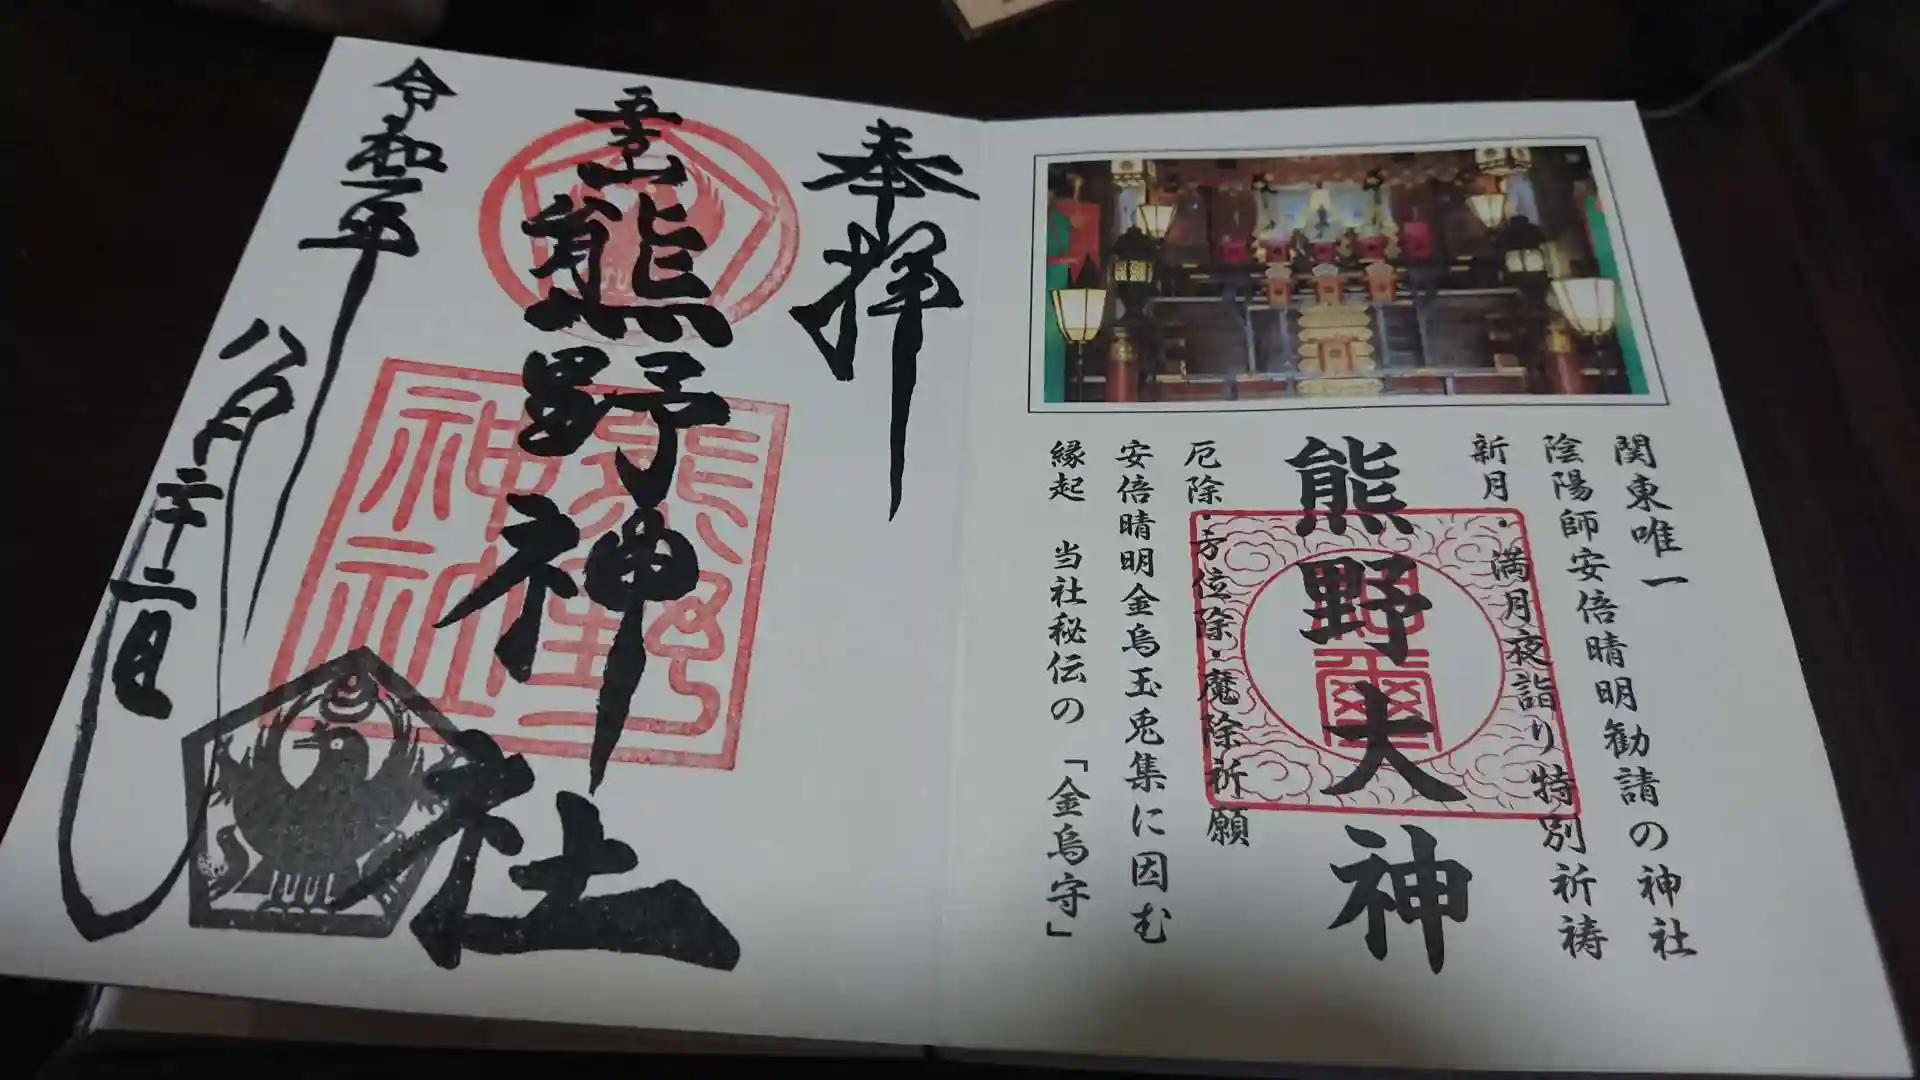 関東唯一
陰陽師安倍晴明勧請の神社
新月・満月夜詣り特別祈祷
熊野大神
厄除・方位除・魔除祈願
安倍晴明金烏玉兎集に因む
縁起　当社秘伝の「金烏守」
奉拝
五方山
熊野神社
熊野神社
令和二年
八月二十二日